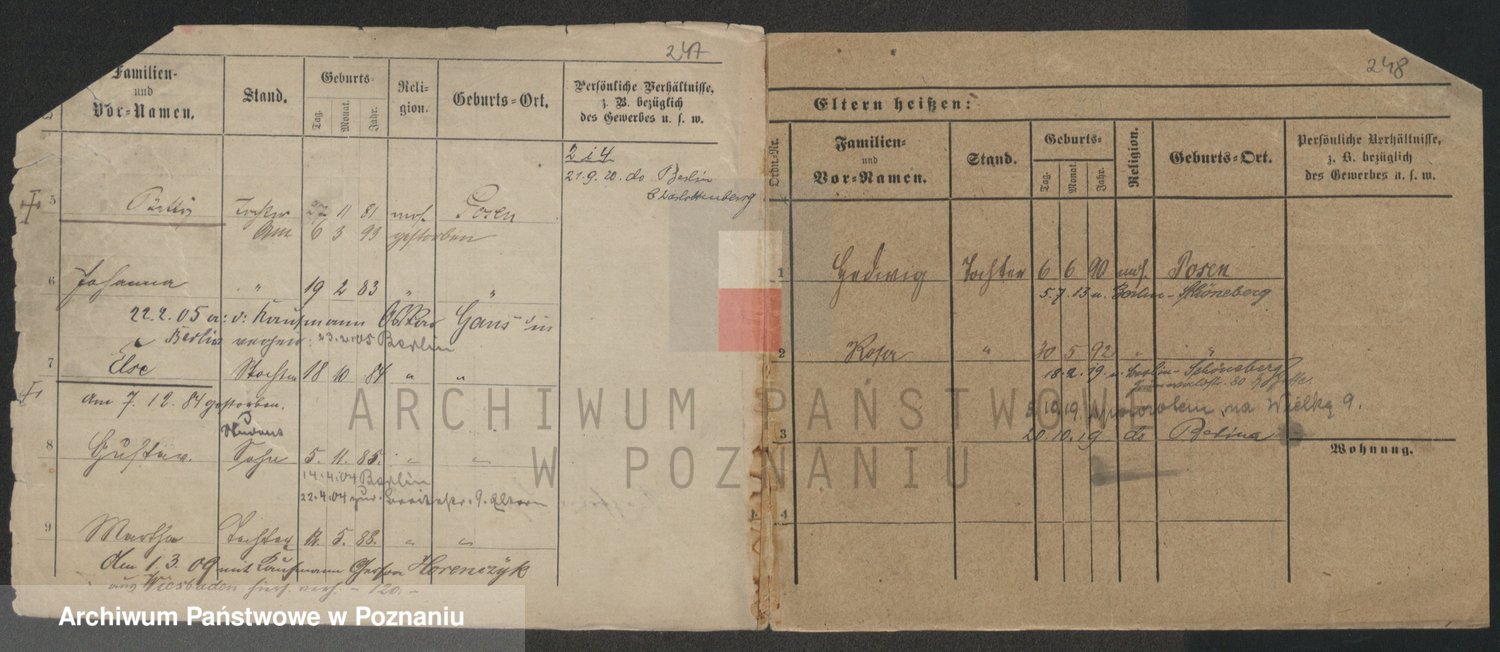 247
Familien-
und
Vor-Namen.
Stand.
Geburts-
Tag.
Monat.
Jahr.
Reli-
gion.
Geburts-Ort.
Persönliche Verhältnisse,
z. B. bezüglich
des Gewerbes u. s. w.
21.9.20. do Berlin
Charlottenberg
5
81 mos. Posen
6 3 99 gestorben
6
Johanna " 19 2 83 " "
22.2.05 Kaufmann Gans in
Berlin 23.2.05 Berlin
7
Else Tochter 18 10 84 " "
am 7.12.84 gestorben.
8
Student
Gustav. Sohn 5. 11. 85. " "
14.4.04 Berlin
22.4.04 zur. Breitestr. 9. Eltern
9
Martha Tochter 5. 88. " "
den 1.3.09 mit Kaufmann Horenczyk
aus Wiesbaden hier verh.
248
Eltern heißen:
Ordn.-Nr.
Familien-
und
Vor-Namen.
Stand.
Geburts-
Tag.
Monat.
Jahr.
Religion.
Geburts-Ort.
Persönliche Verhältnisse,
z. B. bezüglich
des Gewerbes u. s. w.
1
Hedwig Tochter 6 6 90 mos. Posen
5.7.13 n. Berlin-Schöneberg
2
Rosa " 30 5 92 " "
18.2.19 n. Berlin-Schöneberg
19.19. na Wielką 9.
3
20.10.19 do
Wohnung.
4
ARCHIWUM PAŃSTWOWE
W POZNANIU
Archiwum Państwowe w Poznaniu